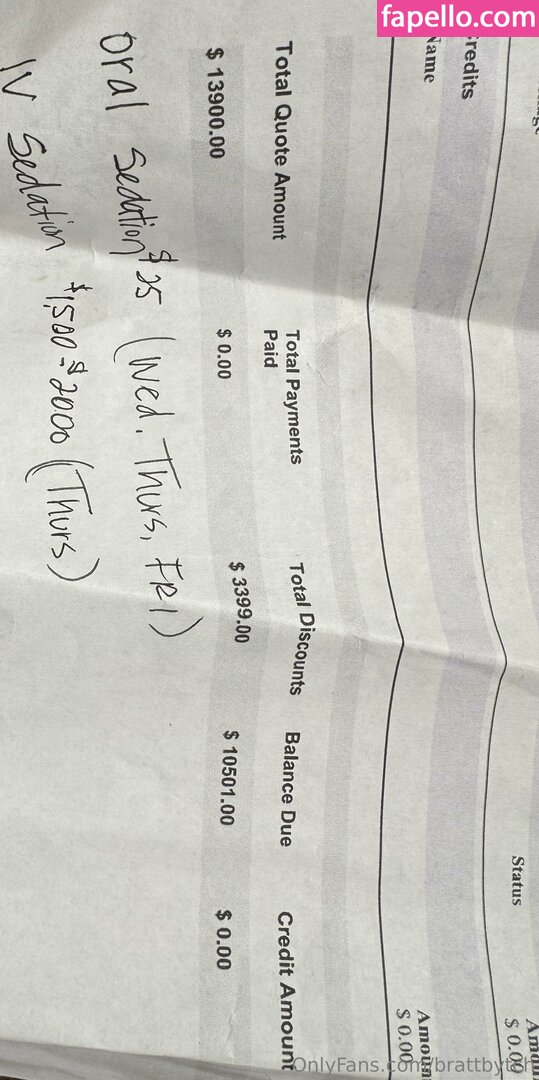 fapello.com
Status
Amou
$ 0.00
redits
Name
Amoun
$ 0.00
Total Quote Amount
Total Payments Paid
Total Discounts
Balance Due
Credit Amount
$ 13900.00
$ 0.00
$ 3399.00
$ 10501.00
$ 0.00
Oral Sedation $25 (Wed. Thurs, FRI)
IV Sedation $1,500-$2000 (Thurs)
OnlyFans.com/brattbytch